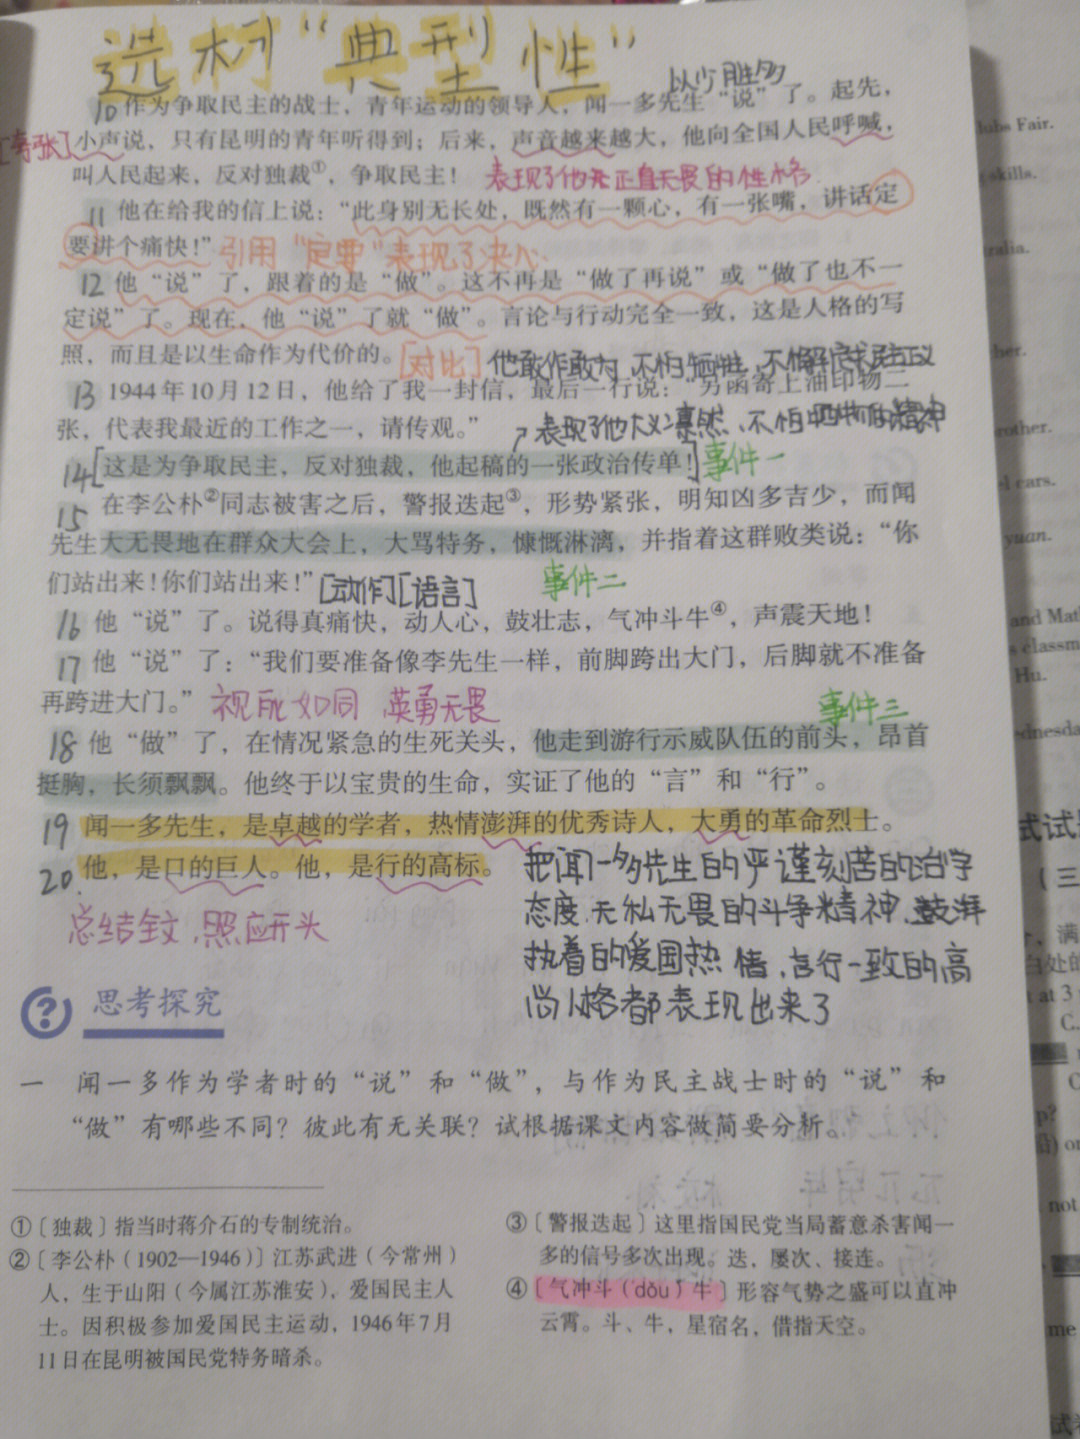 选材“典型性”
以少胜多
10 作为争取民主的战士，青年运动的领导人，闻一多先生“说”了。起先，
[夸张] 小声说，只有昆明的青年听得到；后来，声音越来越大，他向全国人民呼喊，
叫人民起来，反对独裁①，争取民主！ 表现了他无正直无畏的性格
11 他在给我的信上说：“此身别无长处，既然有一颗心，有一张嘴，讲话定
要讲个痛快！” 引用 “定要”表现了决心
12 他“说”了，跟着的是“做”。这不再是“做了再说”或“做了也不一
定说”了。现在，他“说”了就“做”。言论与行动完全一致，这是人格的写
照，而且是以生命作为代价的。[对比] 他敢作敢为，不怕牺牲，
13 1944年10月12日，他给了我一封信，最后一行说：“另函寄上油印物二
张，代表我最近的工作之一，请传观。” 表现了他大义凛然、不怕牺牲的精神
14 [这是为争取民主，反对独裁，他起稿的一张政治传单！] 事件一
15 在李公朴②同志被害之后，警报迭起③，形势紧张，明知凶多吉少，而闻
先生大无畏地在群众大会上，大骂特务，慷慨淋漓，并指着这群败类说：“你
们站出来！你们站出来！” [动作][语言] 事件二
16 他“说”了。说得真痛快，动人心，鼓壮志，气冲斗牛④，声震天地！
17 他“说”了：“我们要准备像李先生一样，前脚跨出大门，后脚就不准备
再跨进大门。” 视死如同 英勇无畏 事件三
18 他“做”了，在情况紧急的生死关头，他走到游行示威队伍的前头，昂首
挺胸，长须飘飘。他终于以宝贵的生命，实证了他的“言”和“行”。
19 闻一多先生，是卓越的学者，热情澎湃的优秀诗人，大勇的革命烈士。
20. 他，是口的巨人。他，是行的高标。
总结全文、照应开头
把闻一多先生的严谨刻苦的治学
态度、无私无畏的斗争精神、澎湃
执着的爱国热情、言行一致的高
尚人格都表现出来了
思考探究
一 闻一多作为学者时的“说”和“做”，与作为民主战士时的“说”和
“做”有哪些不同？彼此有无关联？试根据课文内容做简要分析。
①〔独裁〕指当时蒋介石的专制统治。
②〔李公朴（1902—1946）〕江苏武进（今常州）
人，生于山阳（今属江苏淮安），爱国民主人
士。因积极参加爱国民主运动，1946年7月
11日在昆明被国民党特务暗杀。
③〔警报迭起〕这里指国民党当局蓄意杀害闻一
多的信号多次出现。迭，屡次、接连。
④〔气冲斗（dǒu）牛〕形容气势之盛可以直冲
云霄。斗、牛，星宿名，借指天空。
Fair.
skills.
her.
cars.
yuan.
and
Hu.
at 3
C.
not
me